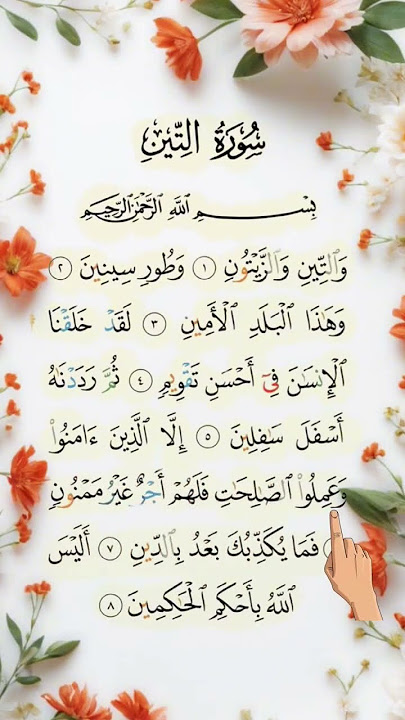 سُورَةُ التِّينِ
بِسْمِ اللَّهِ الرَّحْمَٰنِ الرَّحِيمِ
وَٱلتِّينِ وَٱلزَّيْتُونِ ١ وَطُورِ سِينِينَ ٢
وَهَٰذَا ٱلْبَلَدِ ٱلْأَمِينِ ٣ لَقَدْ خَلَقْنَا
ٱلْإِنسَٰنَ فِىٓ أَحْسَنِ تَقْوِيمٍ ٤ ثُمَّ رَدَدْنَٰهُ
أَسْفَلَ سَٰفِلِينَ ٥ إِلَّا ٱلَّذِينَ ءَامَنُوا۟
وَعَمِلُوا۟ ٱلصَّٰلِحَٰتِ فَلَهُمْ أَجْرٌ غَيْرُ مَمْنُونٍ
فَمَا يُكَذِّبُكَ بَعْدُ بِٱلدِّينِ ٧ أَلَيْسَ
ٱللَّهُ بِأَحْكَمِ ٱلْحَٰكِمِينَ ٨